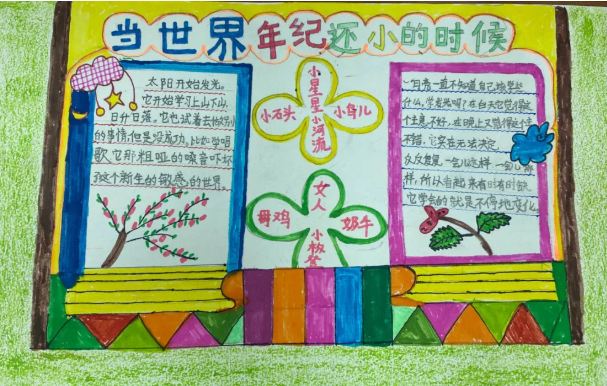 当世界年纪还小的时候
太阳开始发光。
它开始学习上山下山,
日升日落。它也试着去做别
的事情,但是没成功,比如学唱
歌,它那粗哑的嗓音吓坏
了这个新生的敏感的世界。
小星星
小石头
小鸟儿
小河流
女人
母鸡
奶牛
小板凳
月亮一直不知道自己该学些
什么,学发光吗?在白天它觉得这
个主意不好,在晚上又觉得这主意
不错。它实在无法决定。
反反复复,一会儿这样,一会儿那
样,所以看起来有时有时缺。
它学会的就是不停地变化。